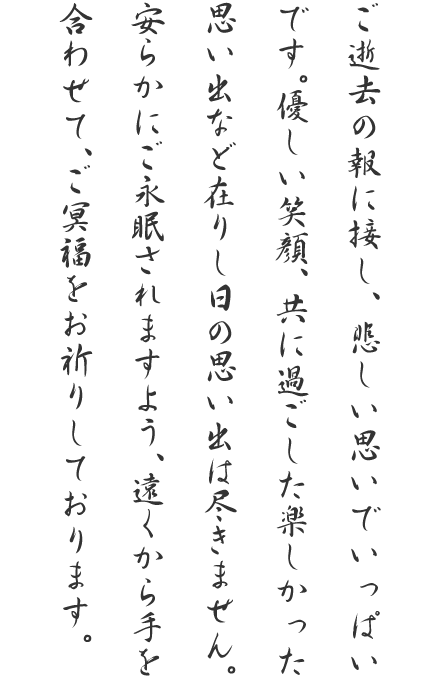 ご逝去の報に接し、悲しい思いでいっぱい
です。優しい笑顔、共に過ごした楽しかった
思い出など在りし日の思い出は尽きません。
安らかにご永眠されますよう、遠くから手を
合わせて、ご冥福をお祈りしております。